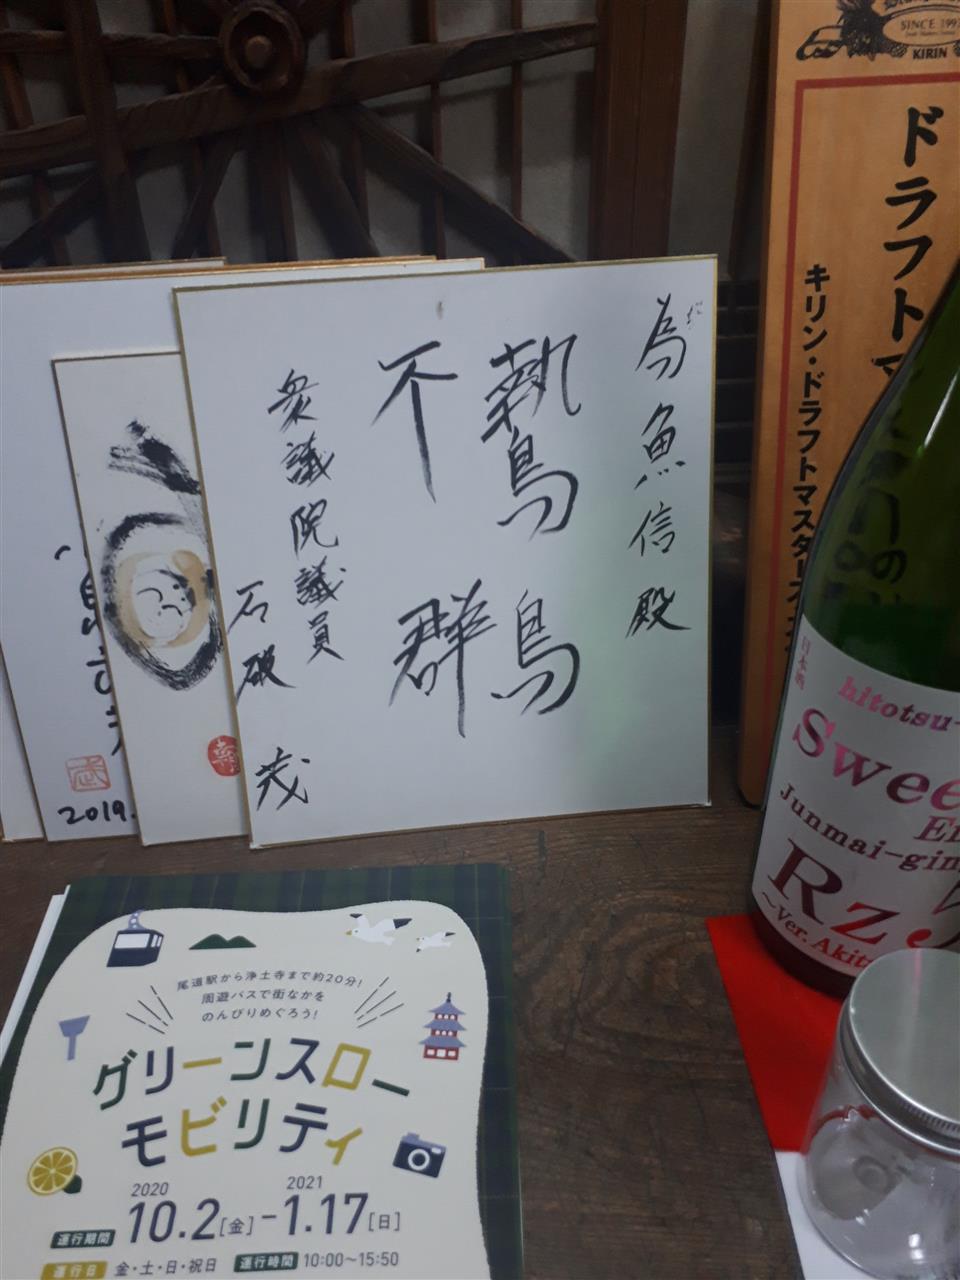 為魚信殿
鷙鳥
不群
衆議院議員
石破 茂
2019.
SINCE 199
KIRIN
ドラフトマ
キリン・ドラフトマスターズ
日本酒
hitotsu-
Swee
Junmai-gin
Rz
~Ver. Akit
尾道駅から浄土寺まで約20分!
周遊バスで街なかを
のんびりめぐろう!
グリーンスロー
モビリティ
2020 2021
運行期間 10.2[金]-1.17[日]
運行日 金・土・日・祝日 運行時間 10:00〜15:50